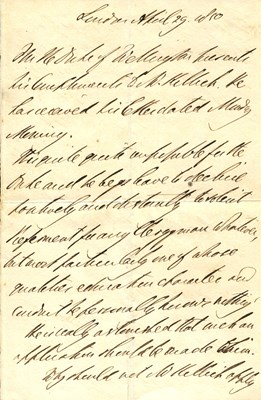 London April 29. 1850
The Duke of Wellington presents
his Compliments to Mr Kellich. He
has received his letter dated Monday
Morning.
It is quite impossible for the
Duke and he begs leave to decline
positively and distinctly to solicit
Preferment for any Clergyman whatever,
but most particularly one of whose
qualities education character and
conduct he personally knows nothing
He is really astonished that such an
application should be made to him.
Why should not Mr Kellich apply